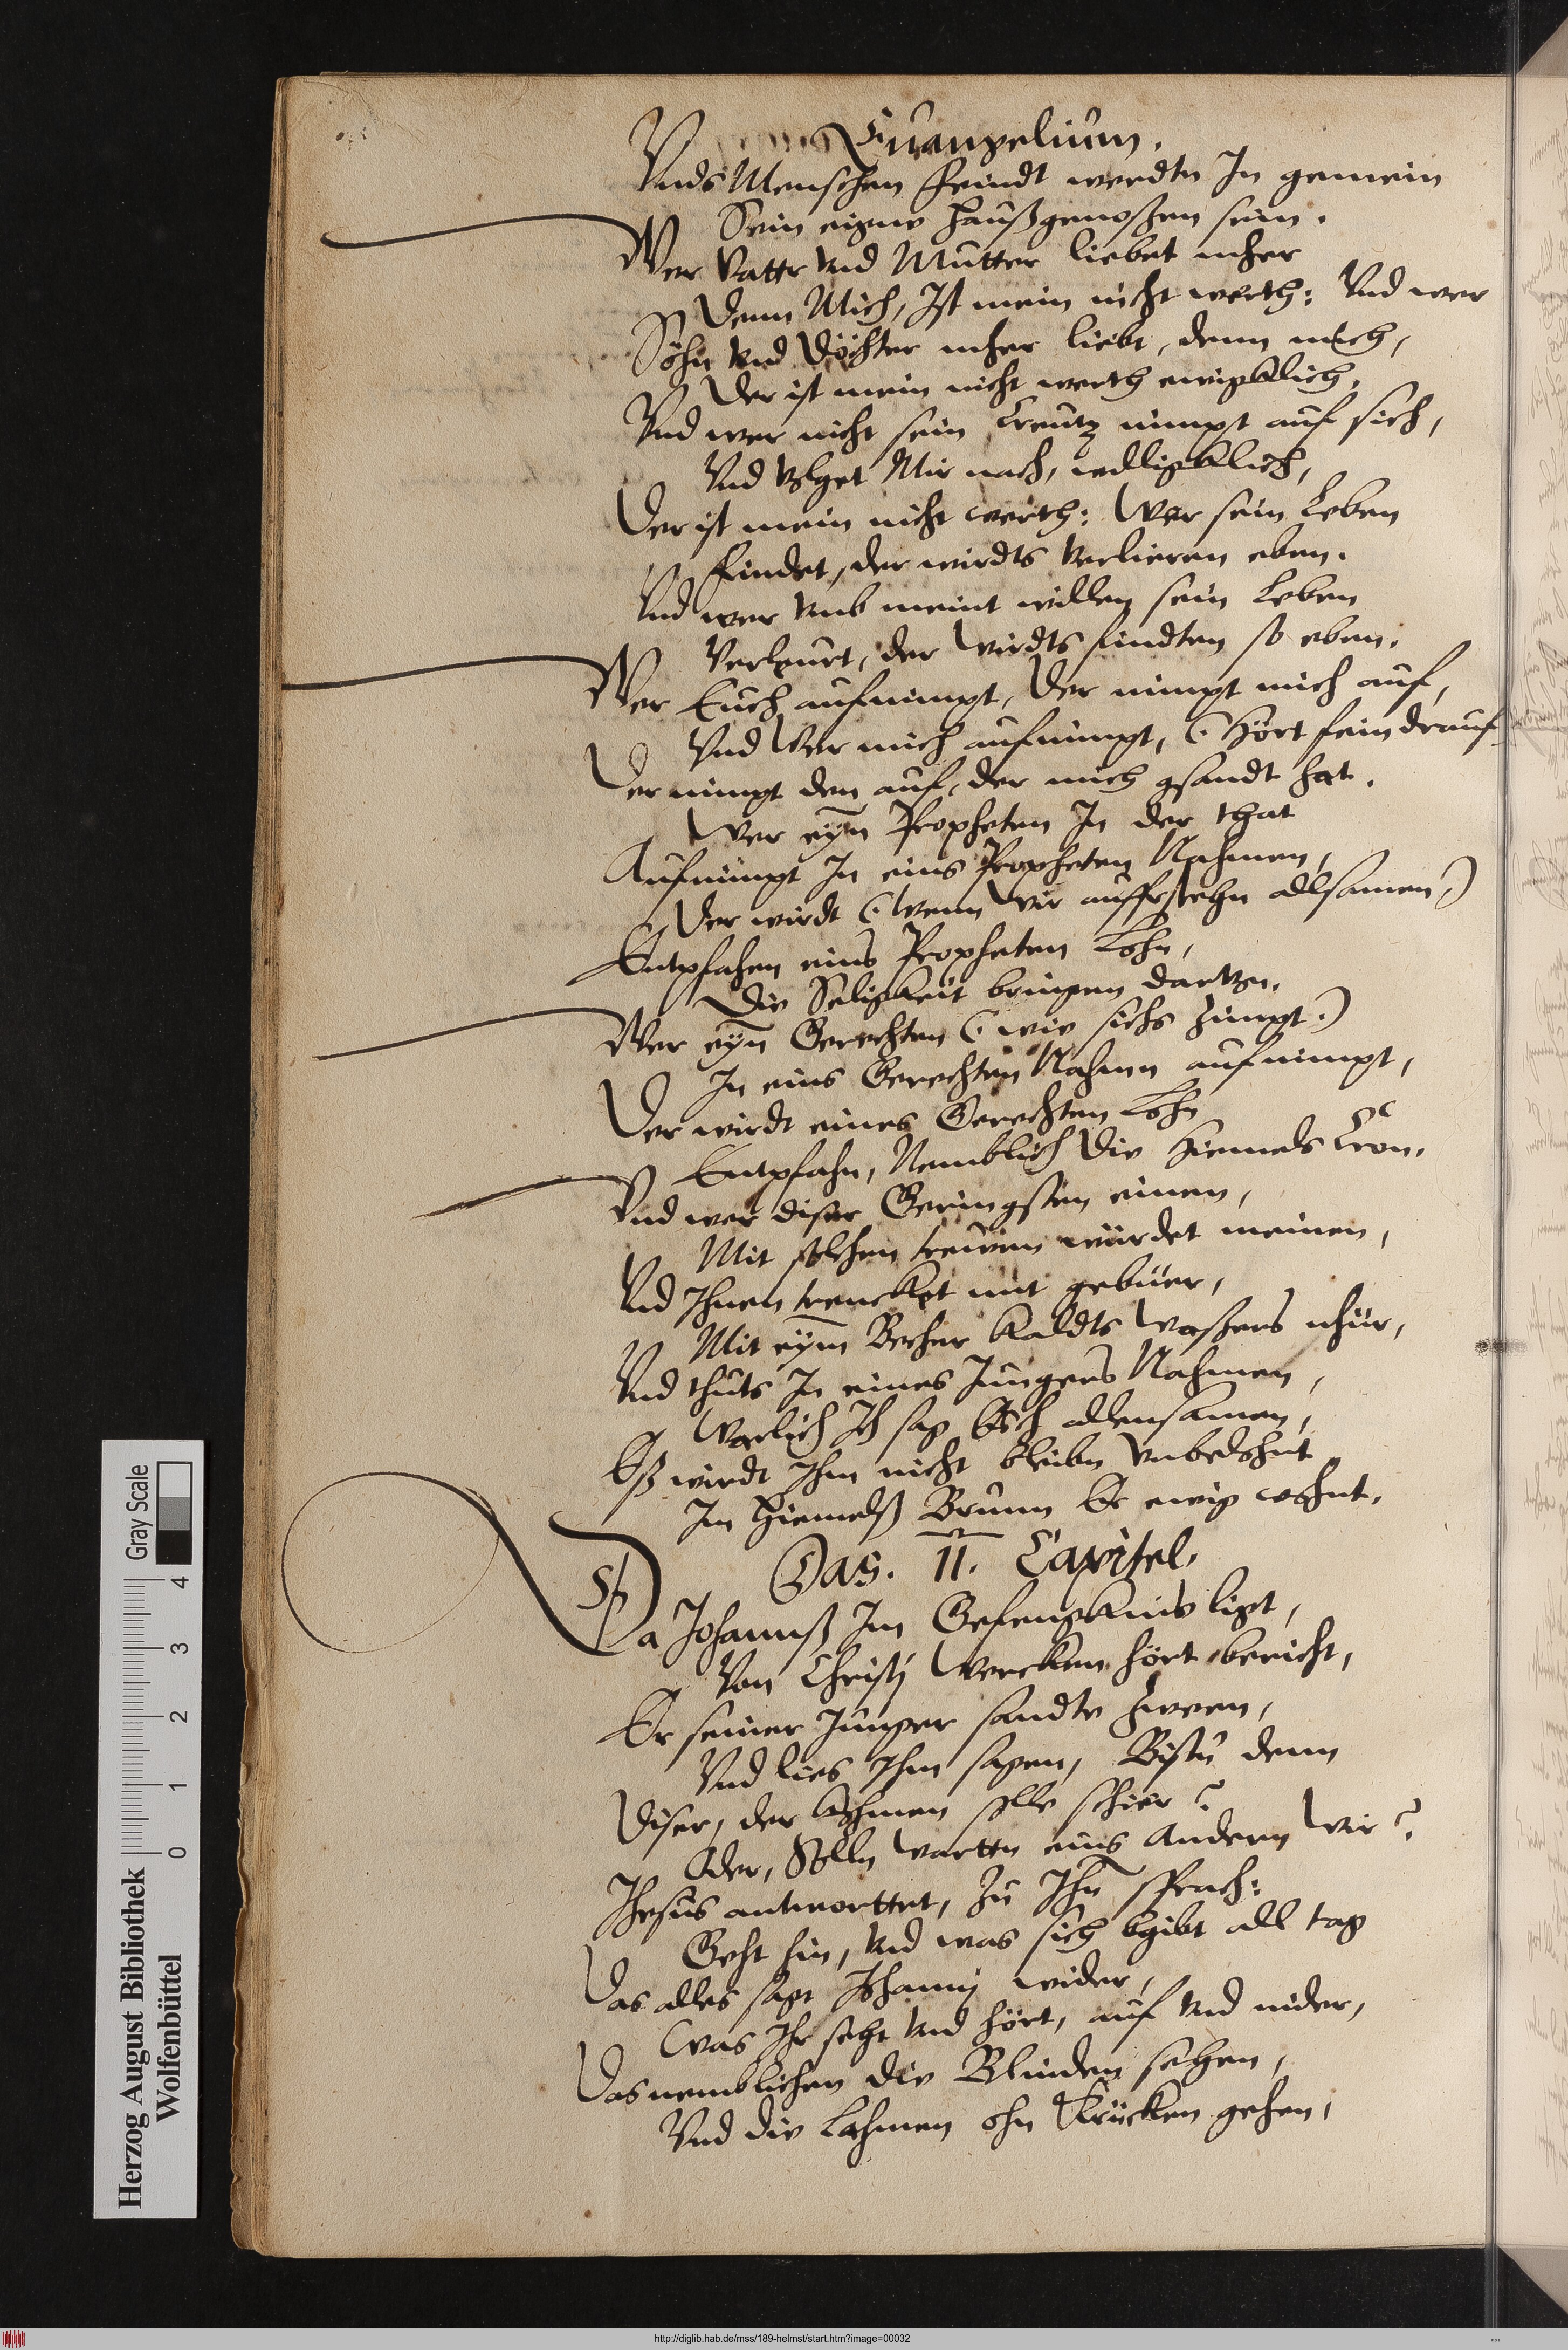 Euangelium.
Vnds Menschen Feindt werdtn In gemein
Sein eigne haußgenoßen sein.
Wer Vattr vnd Mutter liebet mher
Denn Mich, Ist mein nicht werth: Vnd wer
Söhn vnd Döchter mher liebt, denn mich,
Der ist mein nicht werth ewigklich.
Vnd wer nicht sein Creutz nimpt auf sich,
Vnd volget Mir nach, willigklich,
Der ist mein nicht werth: Wer sein Leben
Findet, der wirdts verlieren eben.
Vnd wer vmb meint willen sein Leben
Verleurt, der wirdts findten so eben.
Wer Euch aufnimpt, Der nimpt mich auf,
Vnd Wer mich aufnimpt, (Hört fein drauf
Der nimpt den auf, der mich gsandt hat.
Wer eyn Propheten In der that
Aufnimpt In eins Propheten Nahmen,
Der wirdt (Wenn Wir auffrstehn allsamen)
Entpfahen eins Propheten Lohn,
Die Seligkeit bringen
Wer eyn Gerechten (wie sichs Zimpt.)
In eins Gerechten Nahmn aufnimpt,
Der wirdt eines Gerechten Lohn
Entpfahn, Nemblich Die Hiemels Cron.
Vnd wer diser Geringsten einen,
Mit solchen treuwen würdet meinen,
Vnd Ihnen trencket mit gebüer,
Mit eym Becher kaldts Waßers nhür,
Vnd thuts In eines Jungers Nahmen,
Warlich Ich sag Euch allensamen,
Eß wirdt Ihm nicht bleibn vnbelohnt
Im Hiemelß Er ewig wohnt.
Das. 11. Capitel.
Da Johannß Im Gefengknis ligt,
Von Christi Wercken hört bericht,
Er seiner Junger sandte Zween,
Vnd lies Ihm sagen, Bistu denn
Diser, der kohmen solle schier?
Oder, Solln wartten eins Andern Wir?
Jhesus antworttet, Zu Ihn sprach:
Geht hin, Vnd was sich bgibt all tag
Das alles sagt Johanni wider,
Was Ihr seht vnd hört, auf vnd nider,
Das nemblichen die Blinden sehen,
Vnd die Lahmen ohn Krücken gehen,
Herzog August Bibliothek
Wolfenbüttel
0 1 2 3 4
Gray Scale
http://diglib.hab.de/mss/189-helmst/start.htm?image=00032